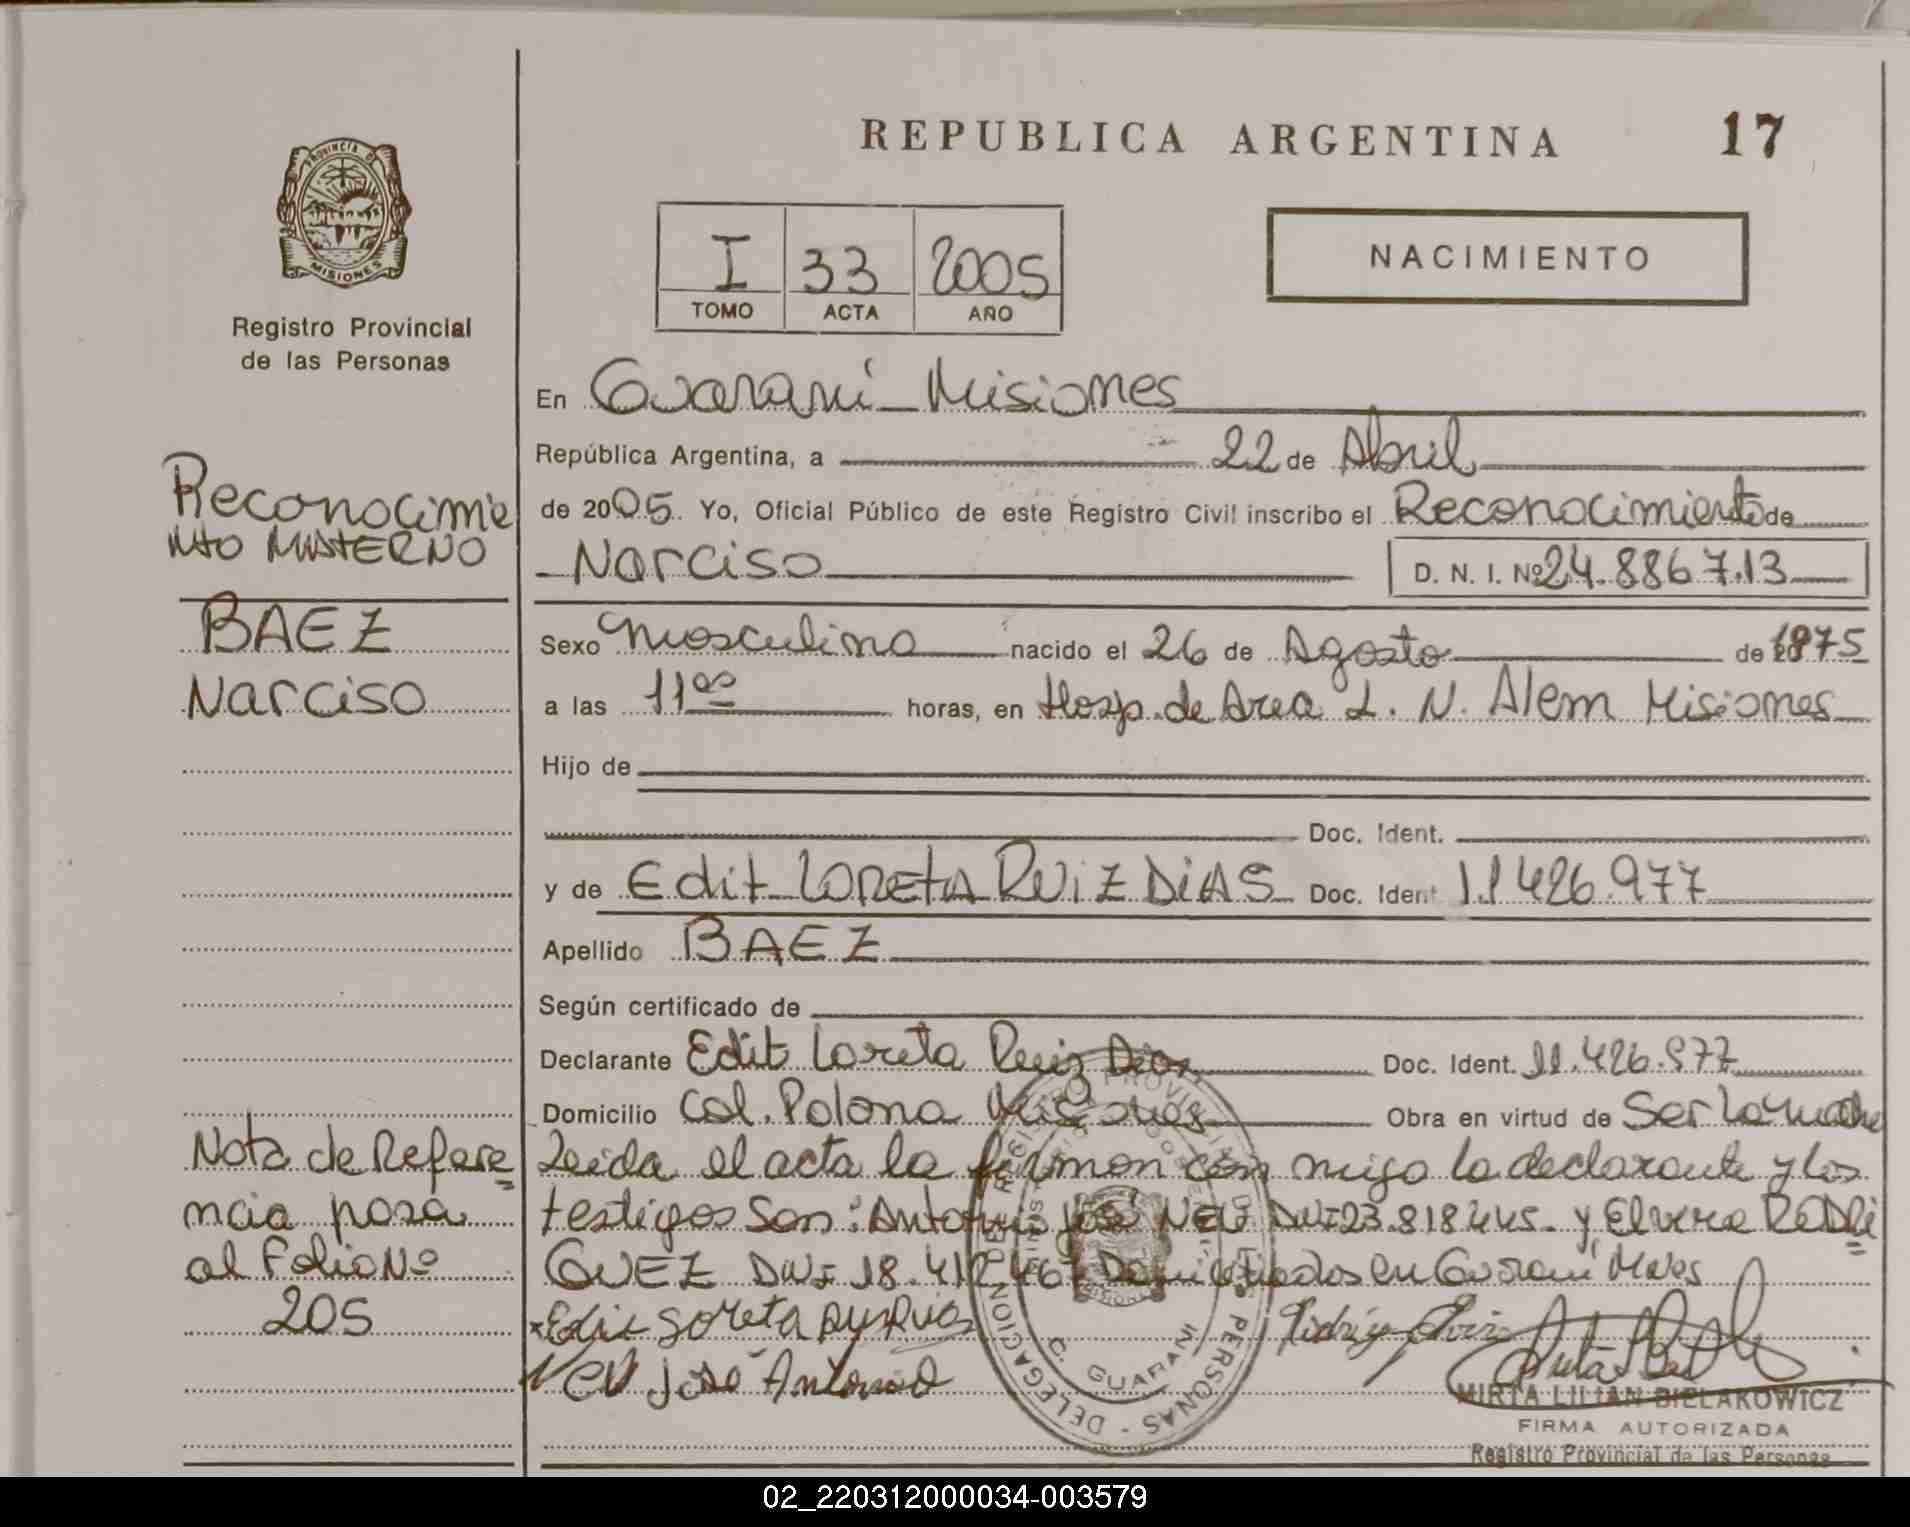 REPUBLICA ARGENTINA
17
PROVINCIA DE
MISIONES
Registro Provincial
de las Personas
I 33 2005
TOMO ACTA AÑO
NACIMIENTO
En Guaraní - Misiones
República Argentina, a 22 de Abril
de 2005 Yo, Oficial Público de este Registro Civil inscribo el Reconocimiento de
Narciso D. N. I. Nº 24.886713
Sexo masculino nacido el 26 de Agosto de 1975
a las 11 00 horas, en Hosp. de Area L. N. Alem Misiones
Hijo de
Doc. Ident.
y de Edit LORETA RUIZ DIAS Doc. Ident 11426.977
Apellido BAEZ
Según certificado de
Declarante Edit Loreta Ruiz Dias Doc. Ident. 11.426.977
Domicilio Col. Polana Misiones Obra en virtud de Ser la madre
Leida el acta la firman con migo la declarante y los
testigos Son: Antonio José NEU DNI 23.818445. y Elvira RODRI
GUEZ DNI 18.412.467 Domiciliados en Guaraní Mnes
Edit Loreta
NEU José Antonio
MIRTA LILIAN BIELAKOWICZ
FIRMA AUTORIZADA
Registro Provincial de las Personas
Reconocimie
nto MATERNO
BAEZ
Narciso
Nota de Refere
ncia pasa
al Folio Nº
205
C. GUARANI
PERSONAS - DELEGACION
02_220312000034-003579